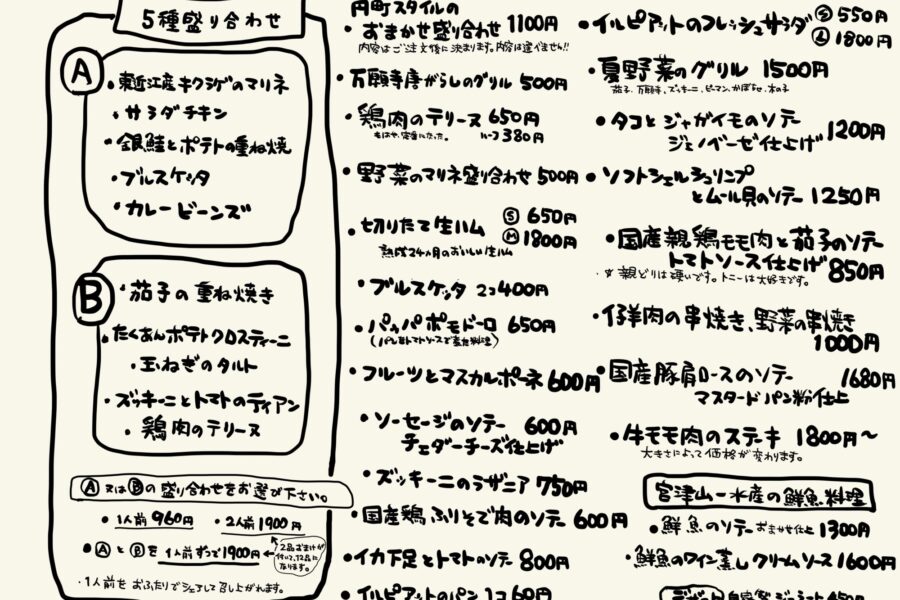 5種盛り合わせ
A
・東近江産キクラゲのマリネ
・サラダチキン
・銀鮭とポテトの重ね焼
・ブルスケッタ
・カレービーンズ
B
・茄子の重ね焼き
・たくあんポテトクロスティーニ
・玉ねぎのタルト
・ズッキーニとトマトのティアン
・鶏肉のテリーヌ
Ⓐ又はⒷの盛り合わせをお選び下さい。
・1人前960円 ・2人前1900円
・ⒶとⒷを1人前ずつで1900円←
2品おまけが
付いて、12品に
なります。
・1人前をおふたりでシェアして召し上がれます。
円町スタイルの
・おまかせ盛り合わせ 1100円
内容はご注文後に決まります。内容は違いません!!
・万願寺唐がらしのグリル 500円
・鶏肉のテリーヌ 650円
ハーフ380円
・野菜のマリネ盛り合わせ 500円
・切りたて生ハム Ⓢ 650円
Ⓜ 1800円
熟成24ヵ月のおいしい生ハム
・ブルスケッタ 2コ400円
・パッパポモドーロ 650円
(パンとトマトソースで煮た料理)
・フルーツとマスカルポーネ 600円
・ソーセージのソテー 600円
チェダーチーズ仕上げ
・ズッキーニのラザニア 750円
・国産鶏ふりそで肉のソテー 600円
・イカ下足とトマトのソテー 800円
・イルピアットのパン 1コ60円
・イルピアットのフレッシュサラダ Ⓢ 550円
Ⓛ 1800円
・夏野菜のグリル 1500円
茄子、万願寺、ズッキーニ、ピーマン、かぼちゃ、木の子
・タコとジャガイモのソテー
ジェノベーゼ仕上げ 1200円
・ソフトシェルシュリンプ
とムール貝のソテー 1250円
・国産親鶏モモ肉と茄子のソテー
トマトソース仕上げ 850円
☆親どりは硬いです。トニーは大好きです。
・仔羊肉の串焼き、野菜の串焼き
1000円
・国産豚肩ロースのソテー 1680円
マスタードパン粉仕上
・牛モモ肉のステーキ 1800円～
大きさによって価格が変わります。
宮津山一水産の鮮魚料理
・鮮魚のソテー おまかせ仕上 1300円
・鮮魚のワイン蒸しクリームソース 1600円
デザート 自家製ジェラート 450円